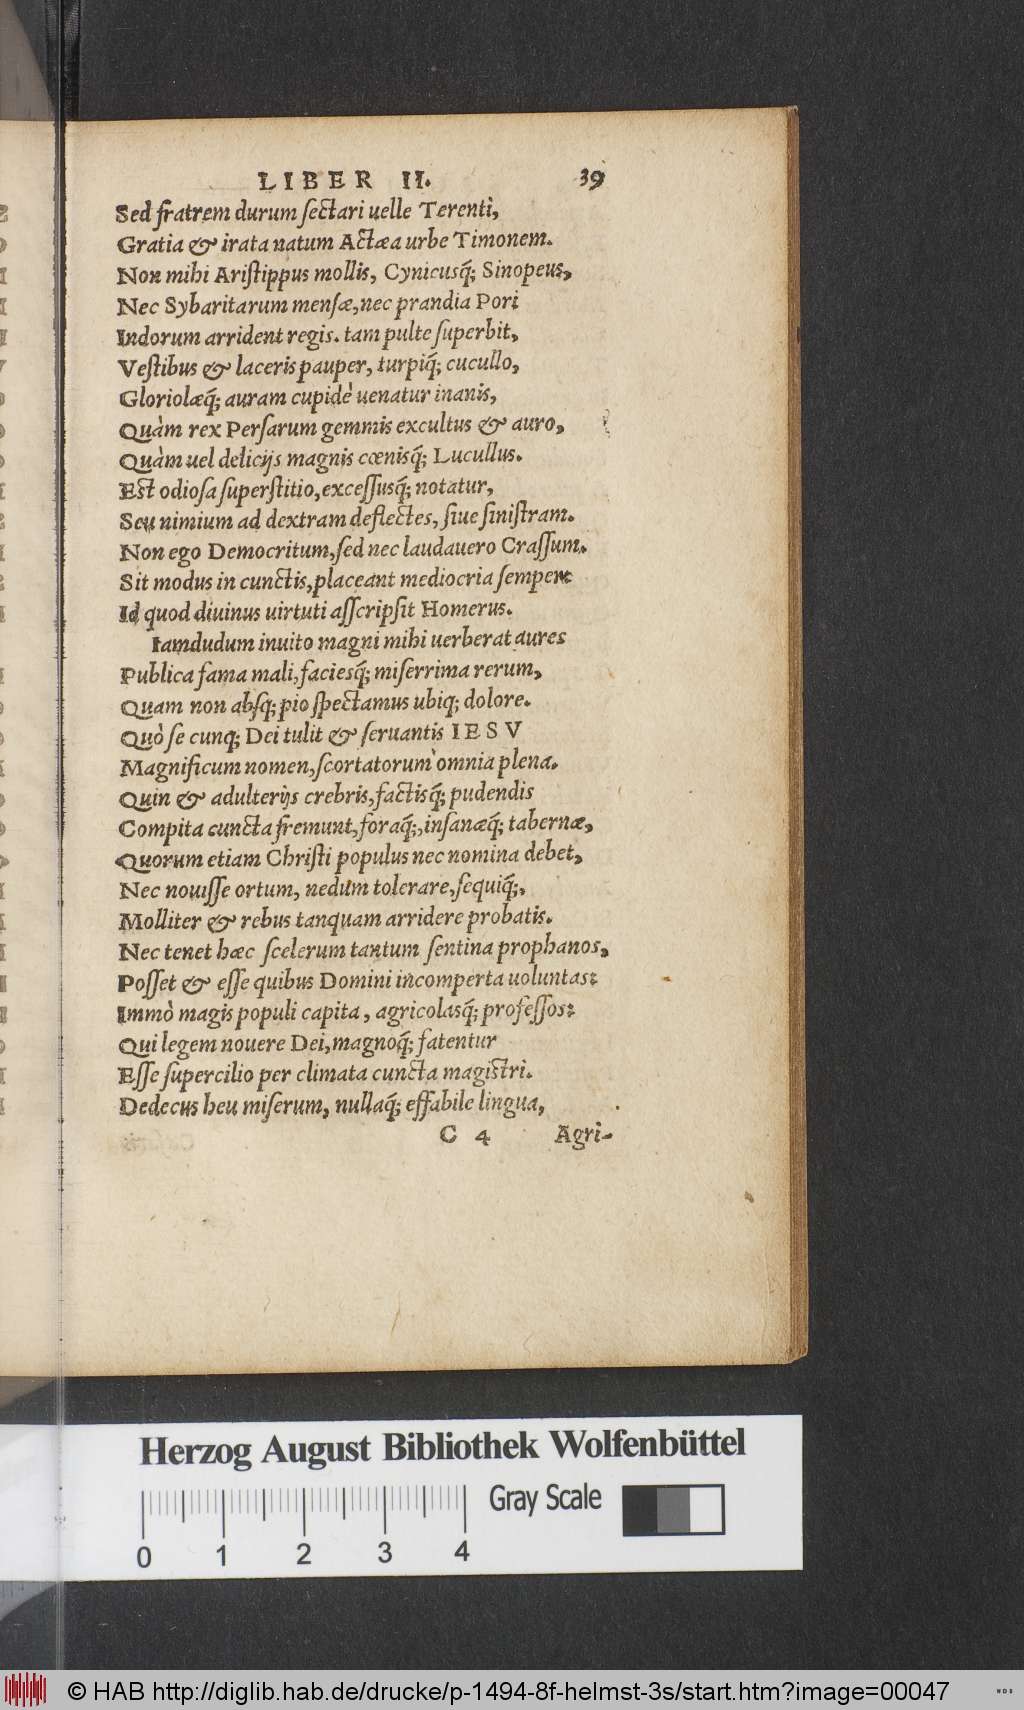 LIBER II. 39
Sed fratrem durum sectari uelle Terenti,
Gratia & irata natum Actæa urbe Timonem.
Non mihi Aristippus mollis, Cynicusq́; Sinopeus,
Nec Sybaritarum mensæ, nec prandia Pori
Indorum arrident regis. tam pulte superbit,
Vestibus & laceris pauper, turpiq́; cucullo,
Gloriolæq́; auram cupidè uenatur inanis,
Quàm rex Persarum gemmis excultus & auro,
Quàm uel delicijs magnis cœnisq́; Lucullus.
Est odiosa superstitio, excessusq́; notatur,
Seu nimium ad dextram deflectes, siue sinistram.
Non ego Democritum, sed nec laudauero Crassum.
Sit modus in cunctis, placeant mediocria semper:
Id quod diuinus uirtuti asscripsit Homerus.
Iamdudum inuito magni mihi uerberat aures
Publica fama mali, faciesq́; miserrima rerum,
Quam non absq; pio spectamus ubiq; dolore.
Quò se cunq; Dei tulit & seruantis IESV
Magnificum nomen, scortatorum omnia plena.
Quin & adulterijs crebris, factisq́; pudendis
Compita cuncta fremunt, foraq́;, insanæq́; tabernæ,
Quorum etiam Christi populus nec nomina debet,
Nec nouisse ortum, nedum tolerare, sequiq́;,
Molliter & rebus tanquam arridere probatis.
Nec tenet hæc scelerum tantum sentina prophanos,
Posset & esse quibus Domini incomperta uoluntas:
Immò magis populi capita, agricolasq́; professos:
Qui legem nouere Dei, magnoq́; fatentur
Esse supercilio per climata cuncta magistri.
Dedecus heu miserum, nullaq́; effabile lingua,
C 4 Agri-
Herzog August Bibliothek Wolfenbüttel
Gray Scale
0 1 2 3 4
© HAB http://diglib.hab.de/drucke/p-1494-8f-helmst-3s/start.htm?image=00047